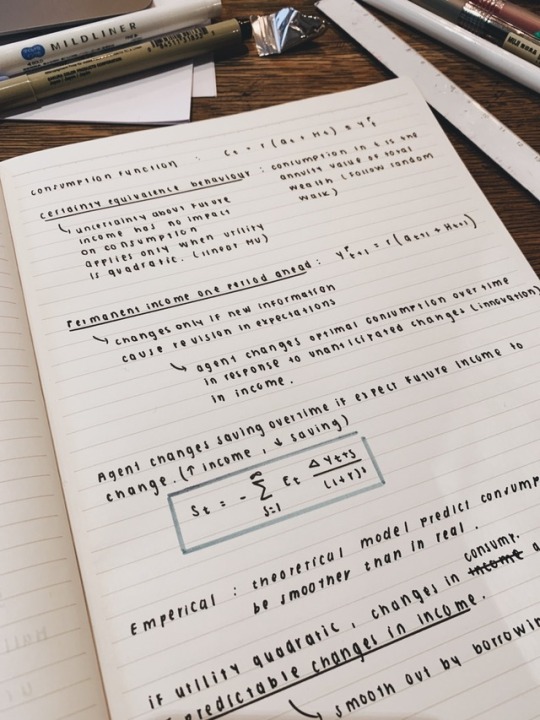 MILDLINER
consumption function : Ct = r ( at + Ht ) = Y^P_t
certainty equivalence behaviour : consumption in t is the
annuity value of total
wealth (follow random
walk)
↳ uncertainty about future
income has no impact
on consumption
applies only when utility
is quadratic. (linear MU)
Permanent income one period ahead : Y^P_t+1 = r ( at+1 + Ht+1 )
↳ changes only if new information
cause revision in expectations
↳ agent changes optimal consumption over time
in response to unanticipated changes (innovation)
in income.
Agent changes saving overtime if expect future income to
change. (↑ income , ↓ saving)
St = - ∞ ∑ s=1 Et ΔYt+s / (1+r)^s
Emperical : theoretical model predict consump
be smoother than in real .
if utility quadratic , changes in consump. income
predictable changes in income.
↳ smooth out by